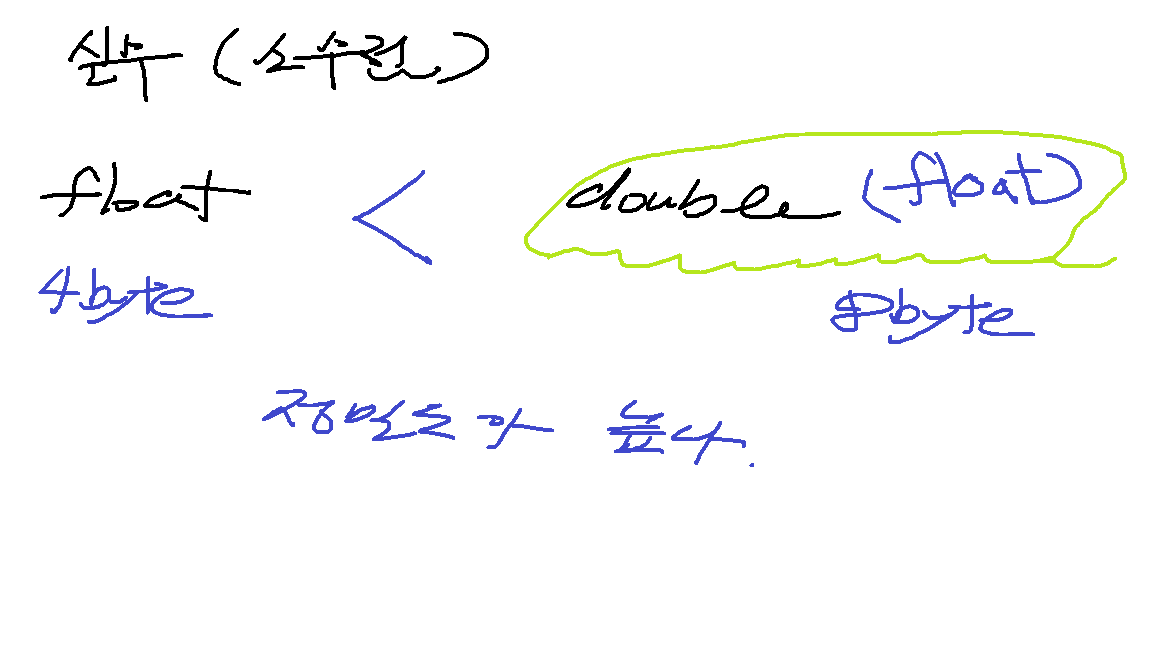 실수 (소수점)
float < double (float)
4byte 8byte
정밀도가 높다.